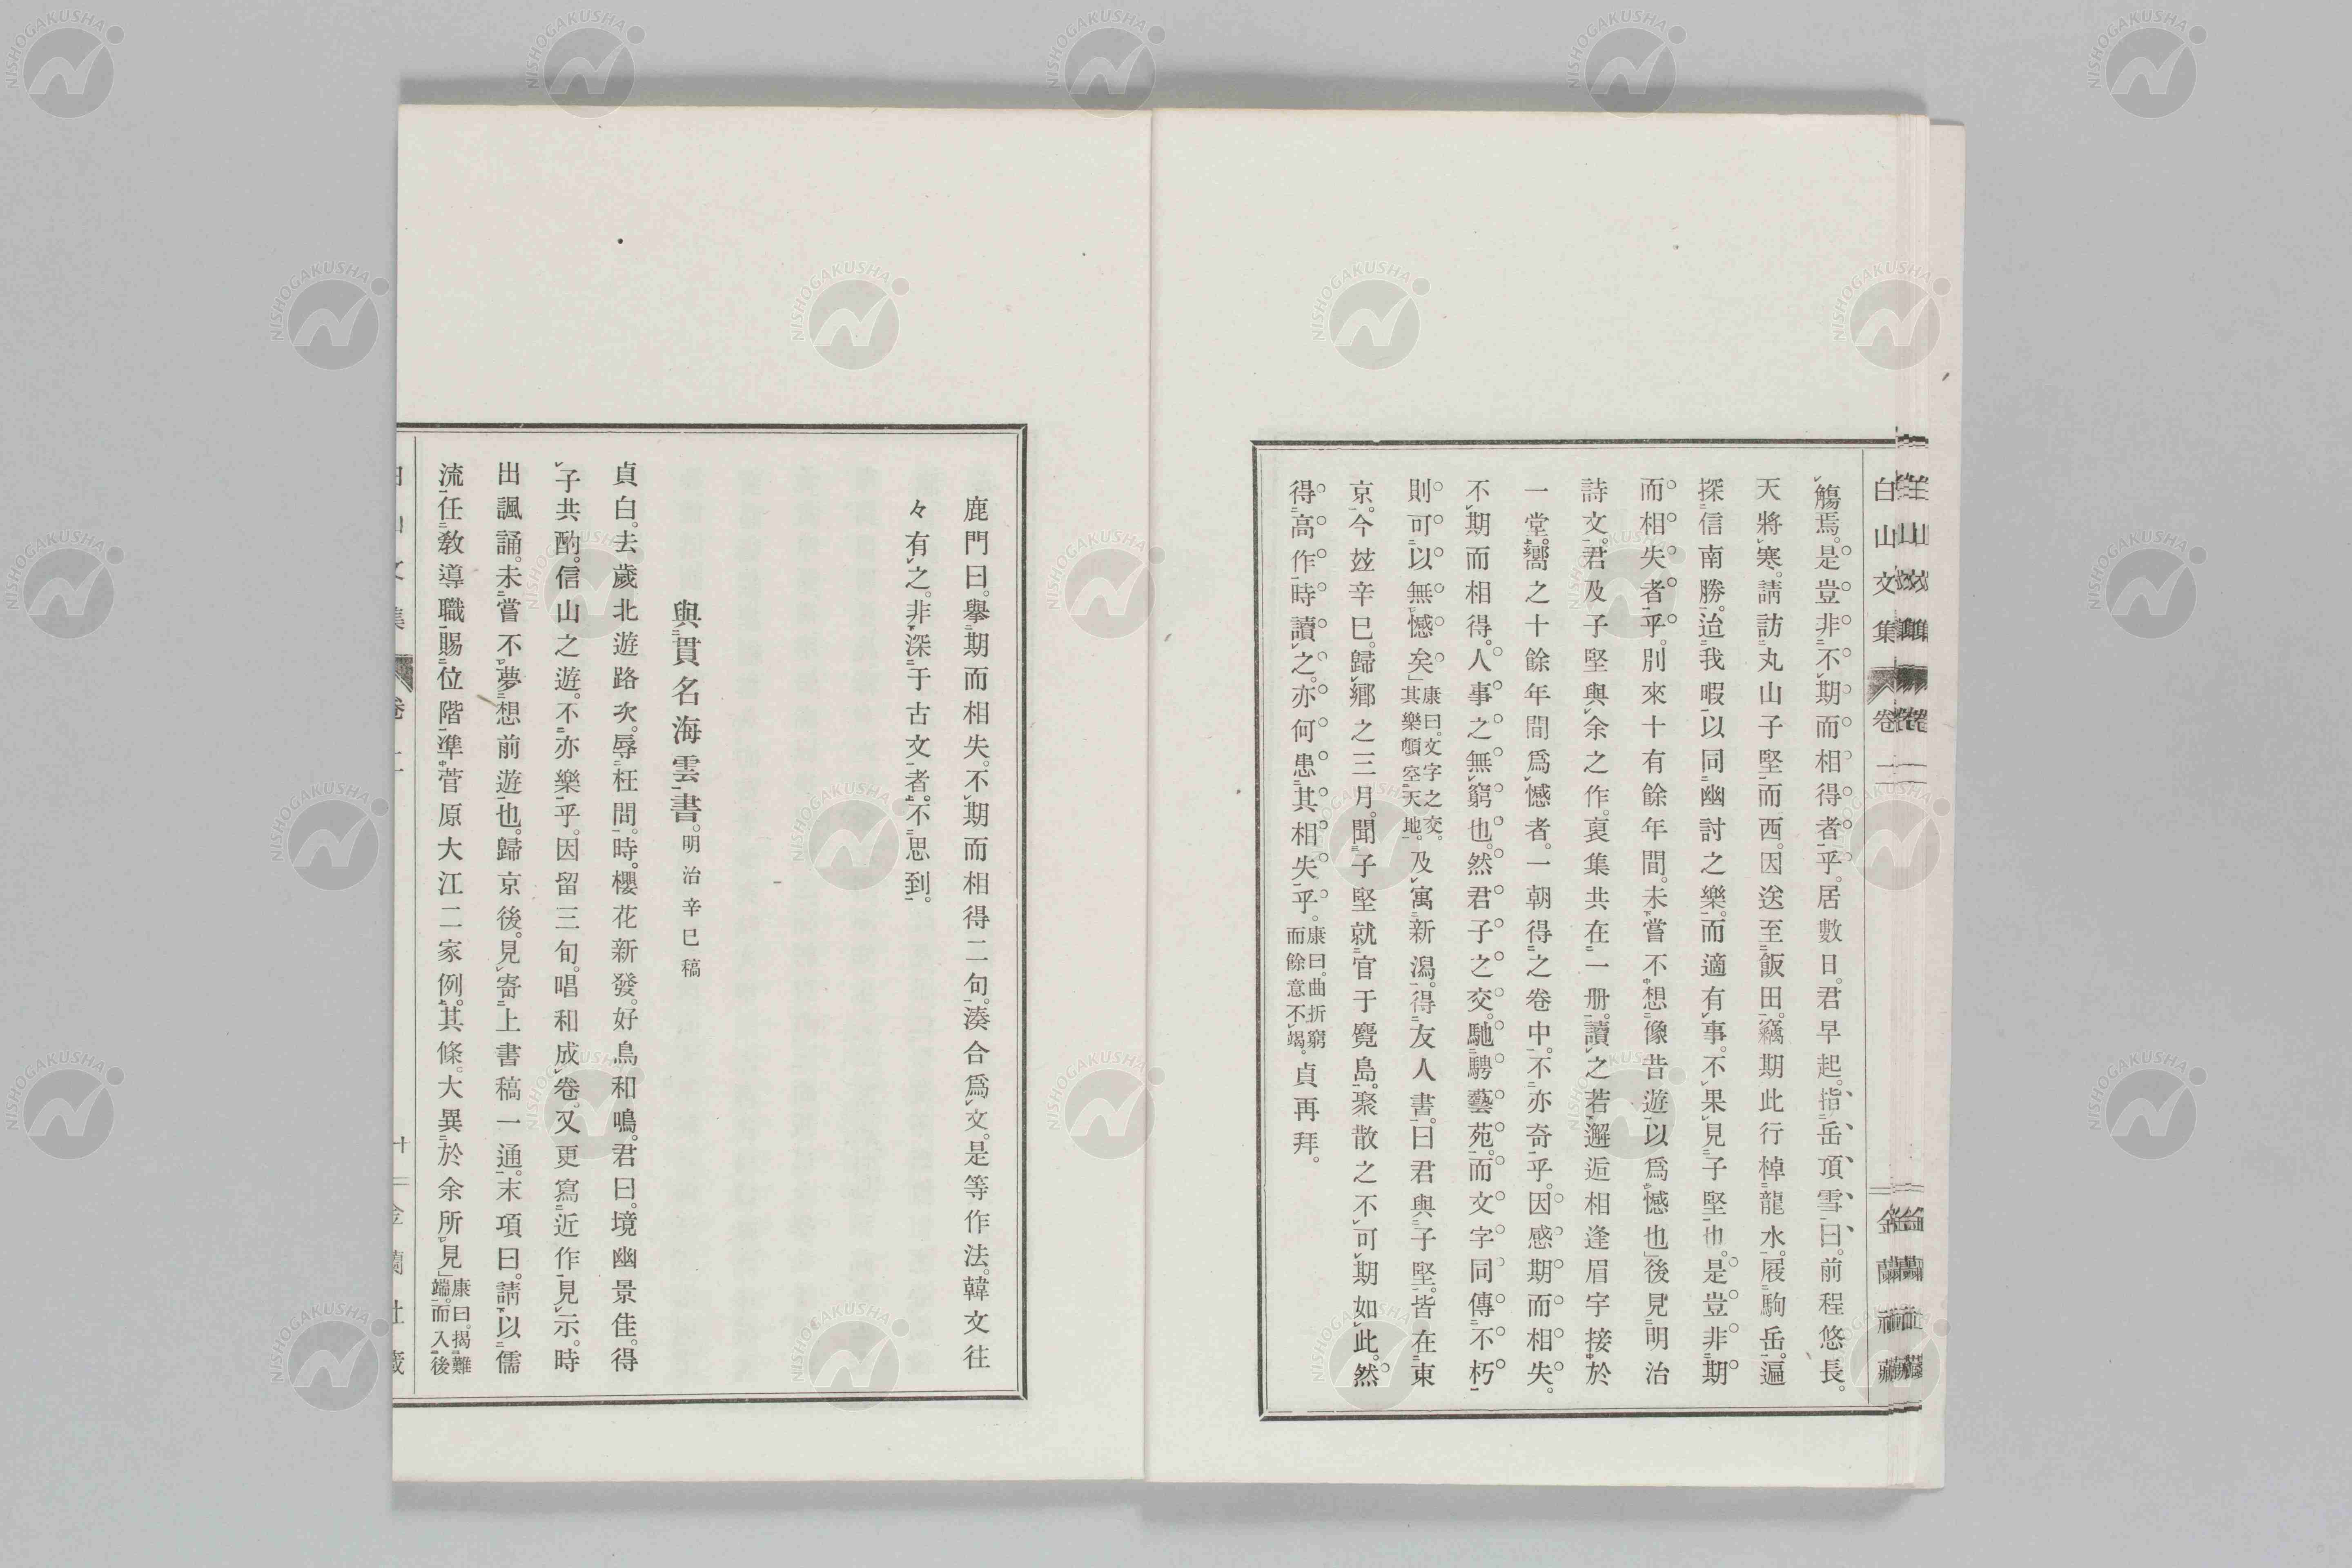 白山文集 卷一 金蘭社藏
觴焉。是豈非不期而相得者乎。居數日。君早起。指岳頂雪曰。前程悠長。
天將寒。請訪丸山子堅而西。因送至飯田。竊期此行棹龍水。屐駒岳。遍
探信南勝。迨我暇以同幽討之樂。而適有事。不果見子堅也。是豈非期
而相失者乎。別來十有餘年間。未嘗不想像昔遊以爲憾也」後見明治
詩文。君及子堅與余之作。裒集共在一册。讀之若邂逅相逢眉宇接於
一堂。嚮之十餘年間爲憾者。一朝得之卷中。不亦奇乎。因感期而相失。
不期而相得。人事之無窮也。然君子之交。馳騁藝苑。而文字同傳不朽
則可以無憾矣」康曰。文字之交。其樂頓空天地。及寓新潟。得友人書。曰君與子堅。皆在東
京。今玆辛巳。歸鄕之三月。聞子堅就官于麑島。聚散之不可期如此。然
得高作時讀之。亦何患其相失乎。康曰。曲折窮而餘意不竭。貞再拜。
鹿門曰。擧期而相失。不期而相得二句。湊合爲文。是等作法。韓文往
々有之。非深于古文者。不思到。
與貫名海雲書。明治辛巳稿
貞白。去歲北遊路次。辱枉問。時櫻花新發。好鳥和鳴。君曰。境幽景佳。得
子共酌。信山之遊。不亦樂乎。因留三旬。唱和成卷。又更寫近作見示。時
出諷誦。未嘗不夢想前遊也。歸京後。見寄上書稿一通。末項曰。請以儒
流任敎導職賜位階。準菅原大江二家例。其條。大異於余所見」康曰。揭難端。而入後